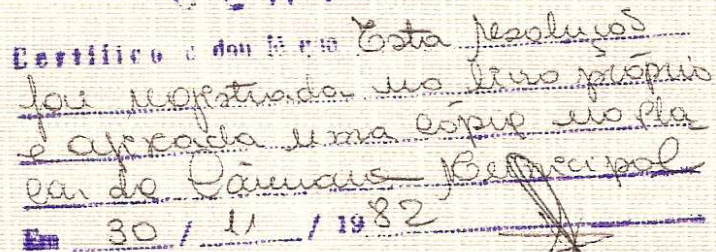 Certifico e dou fé que Esta resolução
foi registrada no livro próprio
e afixada uma cópia no pla
car da Câmara Municipal
Em 30 / 11 / 1982